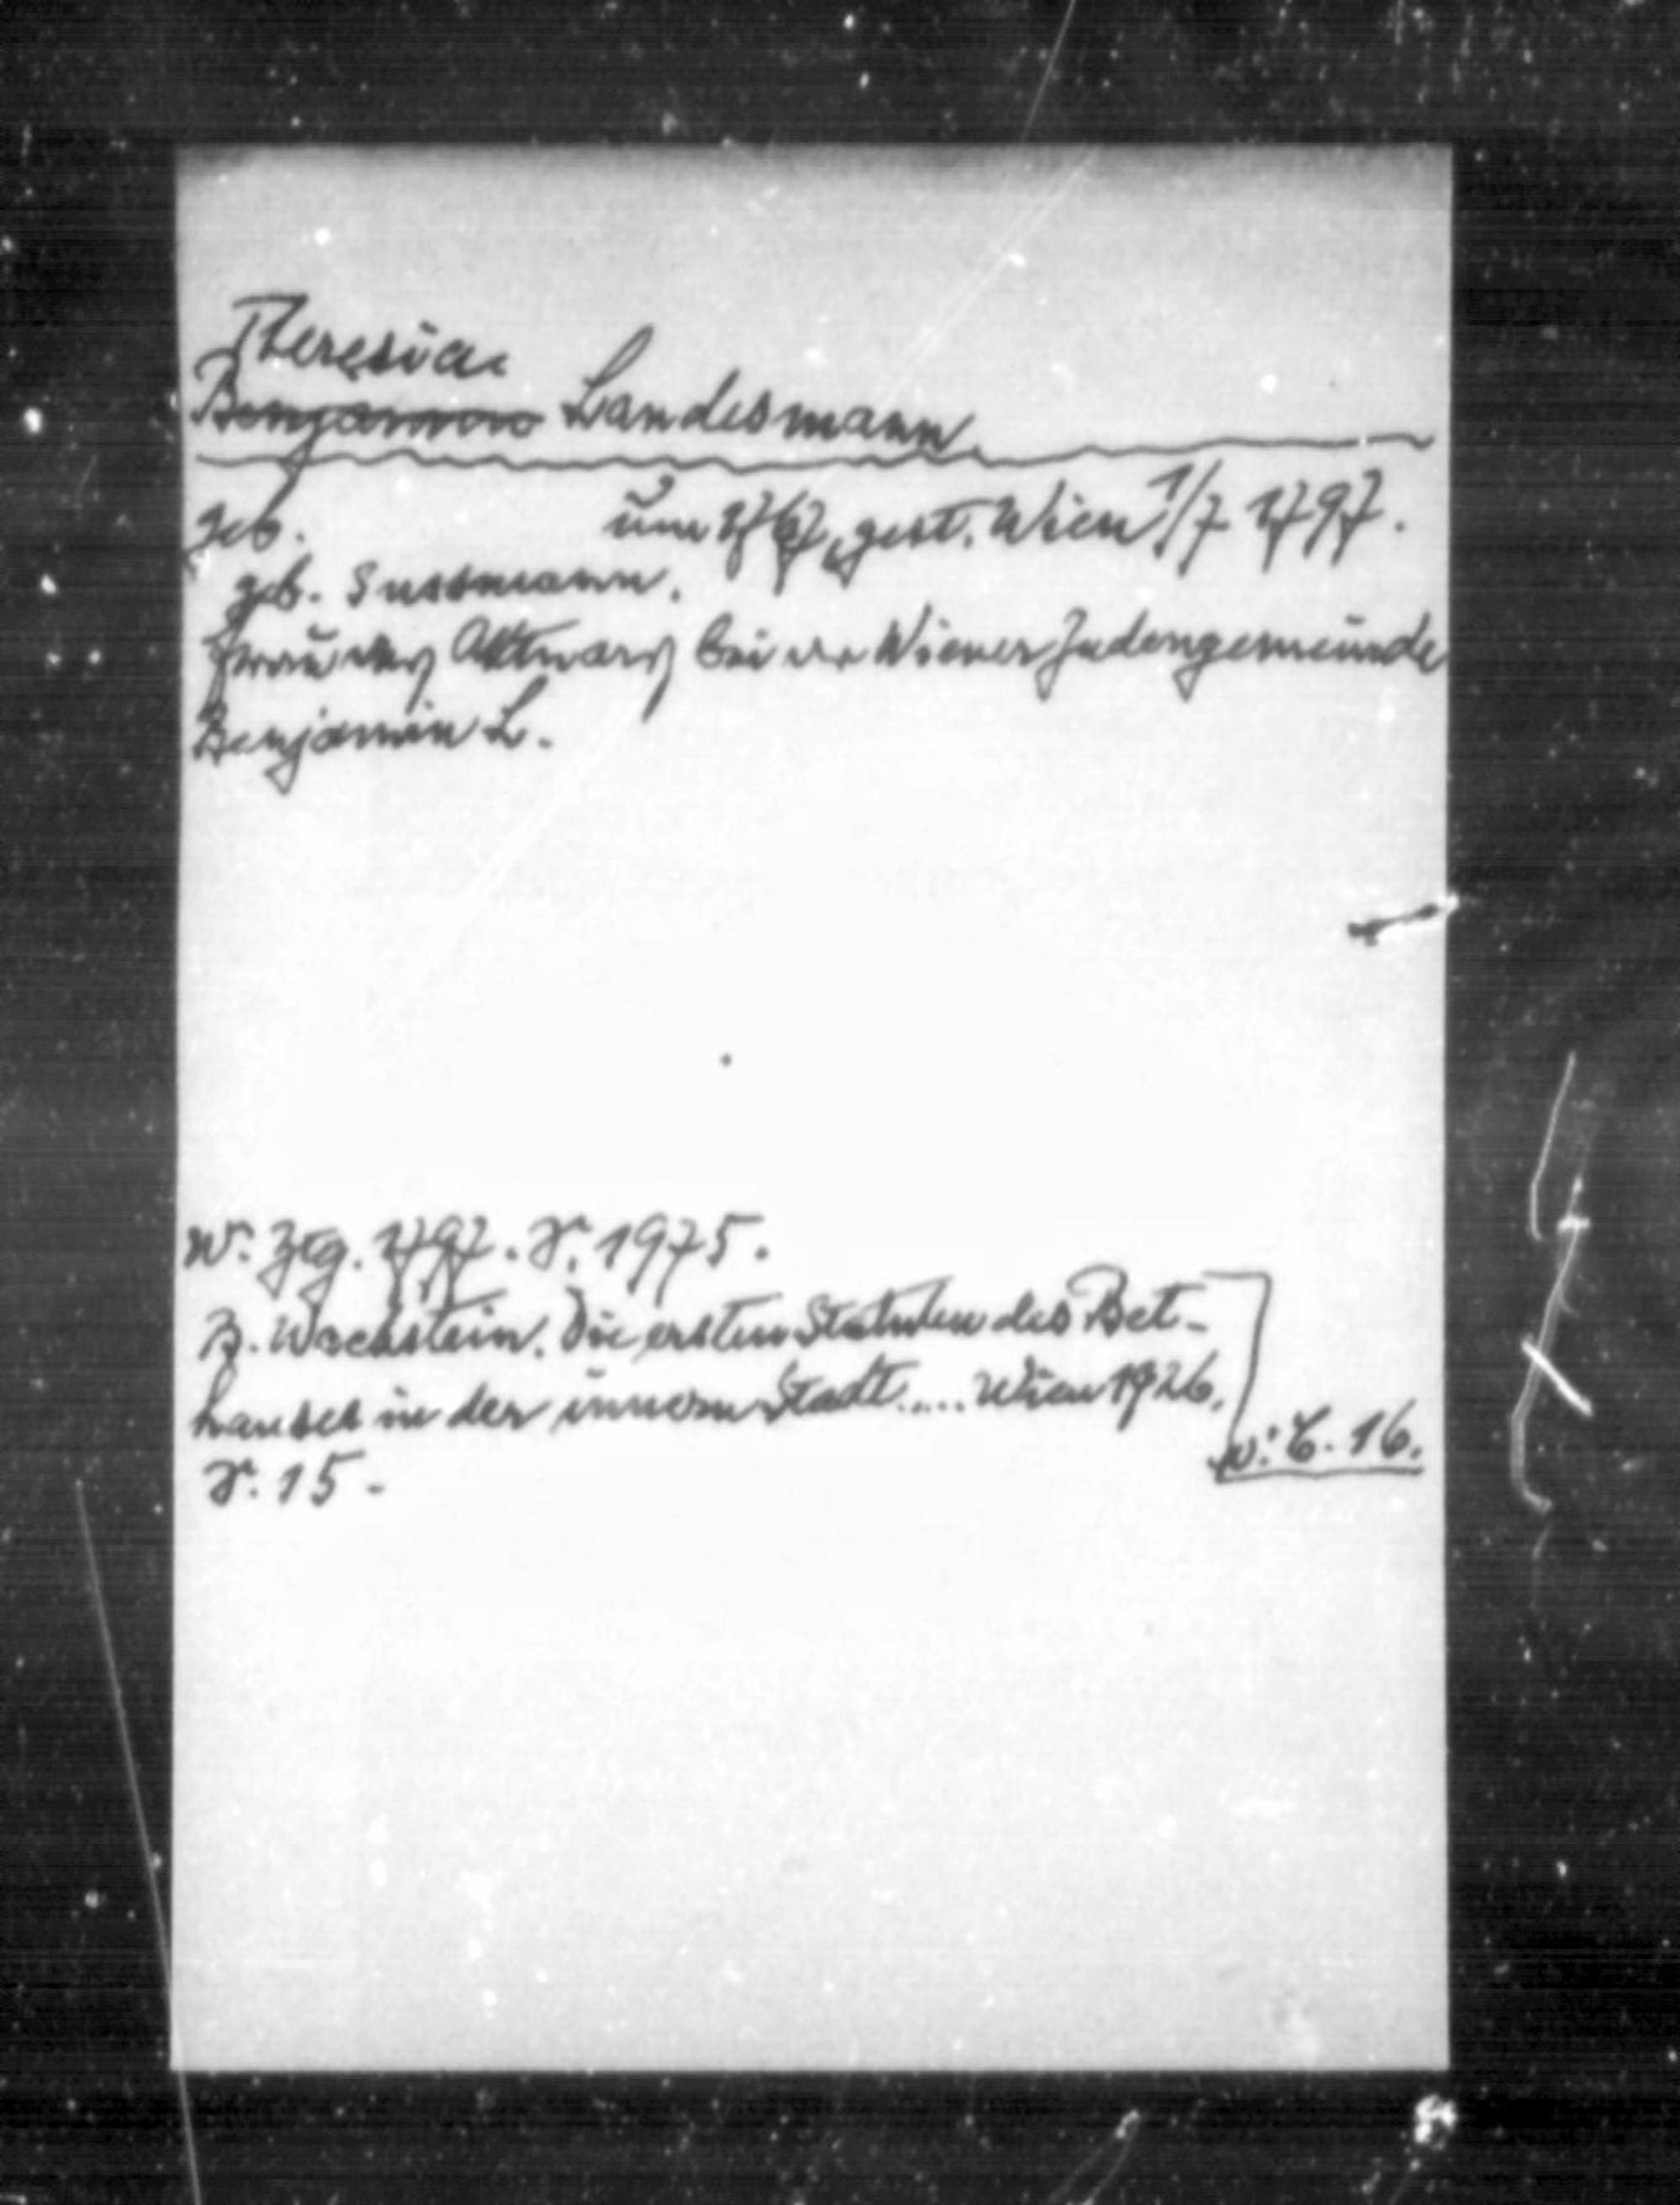 Theresia
Benjamin Landesmann
geb. um 1767, gest. Wien 1/7 1797.
geb. Sussmann.
Frau des Aktuars bei der Wiener Judengemeinde
Benjamin L.
W. Ztg. 1797. S. 1975.
B. Wachstein. Die ersten Statuten des Bet-
hauses in der innern Stadt..... Wien 1926.
S. 15.
16.